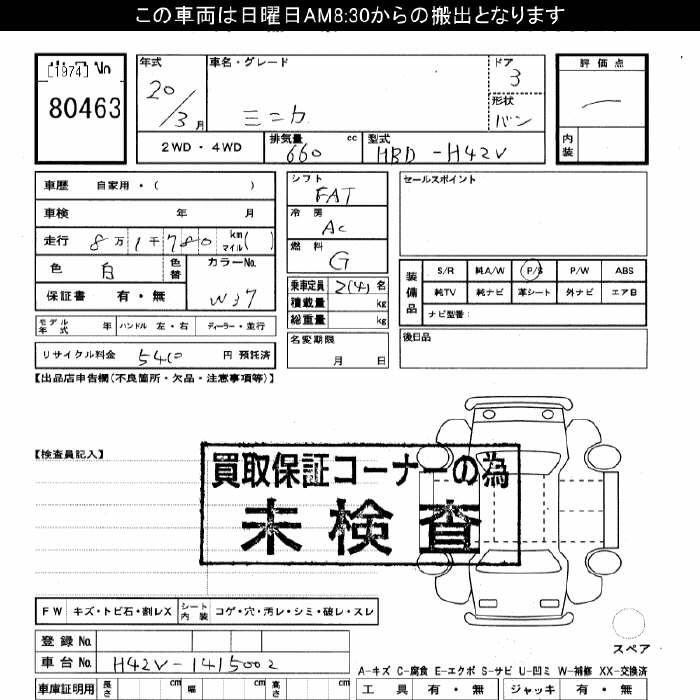 この車両は日曜日AM8:30からの搬出となります
[1974] No
80463
年式
20/3月
車名・グレード
ミニカ
ドア
3
形状
バン
評価点
内装
2WD・4WD
排気量
660 cc
型式
HBD-H42V
車歴 自家用・( )
車検 年 月
走行 8万1千780 km マイル( )
色 白 色替
カラーNo.
W37
保証書 有・無
モデル年式 年 ハンドル 左・右 ディーラー・並行
リサイクル料金 5410 円 預託済
シフト
FAT
冷房
AC
燃料
G
乗車定員 2(4)名
積載量 kg
総重量 kg
名変期限
月 日
セールスポイント
装備品
S/R 純A/W P/S P/W ABS
純TV 純ナビ 革シート 外ナビ エアB
ナビ型番:
後日品
【出品店申告欄(不良箇所・欠品・注意事項等)】
【検査員記入】
買取保証コーナーの為
未検査
FW キズ・トビ石・割レX シート内装 コゲ・穴・汚レ・シミ・破レ・スレ
スペア
登録No.
車台No. H42V-1415002
A-キズ C-腐食 E-エクボ S-サビ U-凹ミ W-補修 XX-交換済
車庫証明用 長さ cm 幅 cm 高さ cm
工具 有・無 ジャッキ 有・無